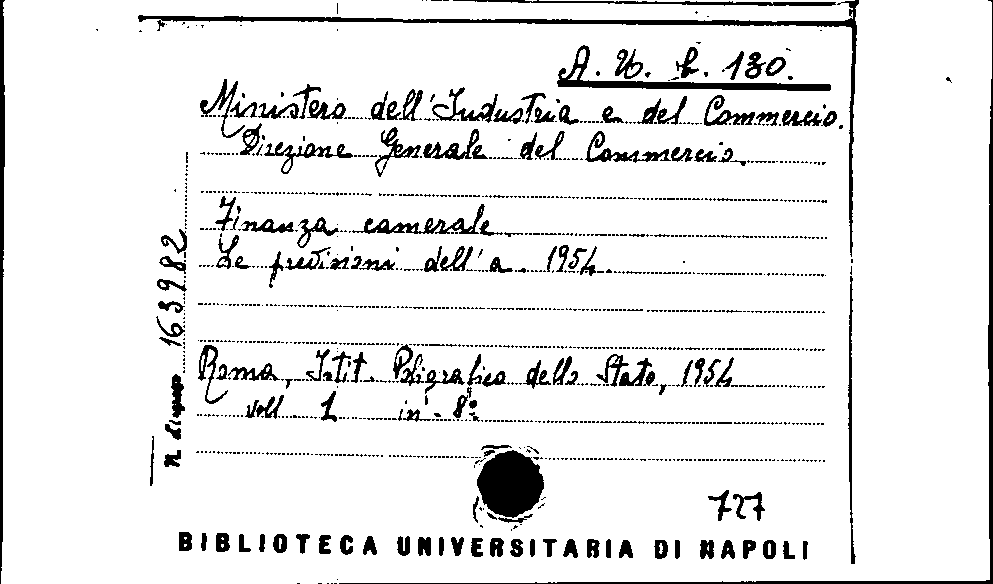 A. U. b. 130.
Ministero dell'Industria e del Commercio.
Direzione Generale del Commercio.
Finanza camerale.
Le previsioni dell'a. 1954.
Roma, Istit. Poligrafico dello Stato, 1954
voll. 1 in-8°
N. d'ingresso 163982
727
BIBLIOTECA UNIVERSITARIA DI NAPOLI